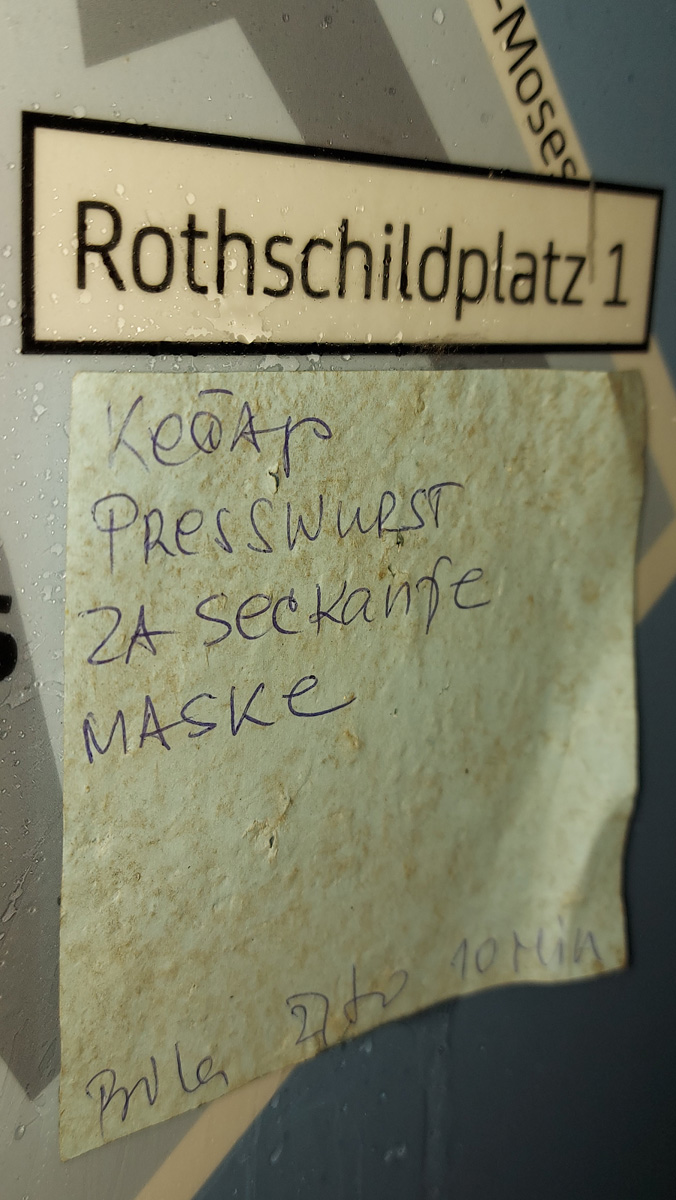 -Moses
Rothschildplatz 1
Keāap
PRESSWURST
ZA Seckanje
MASKE
10 Min